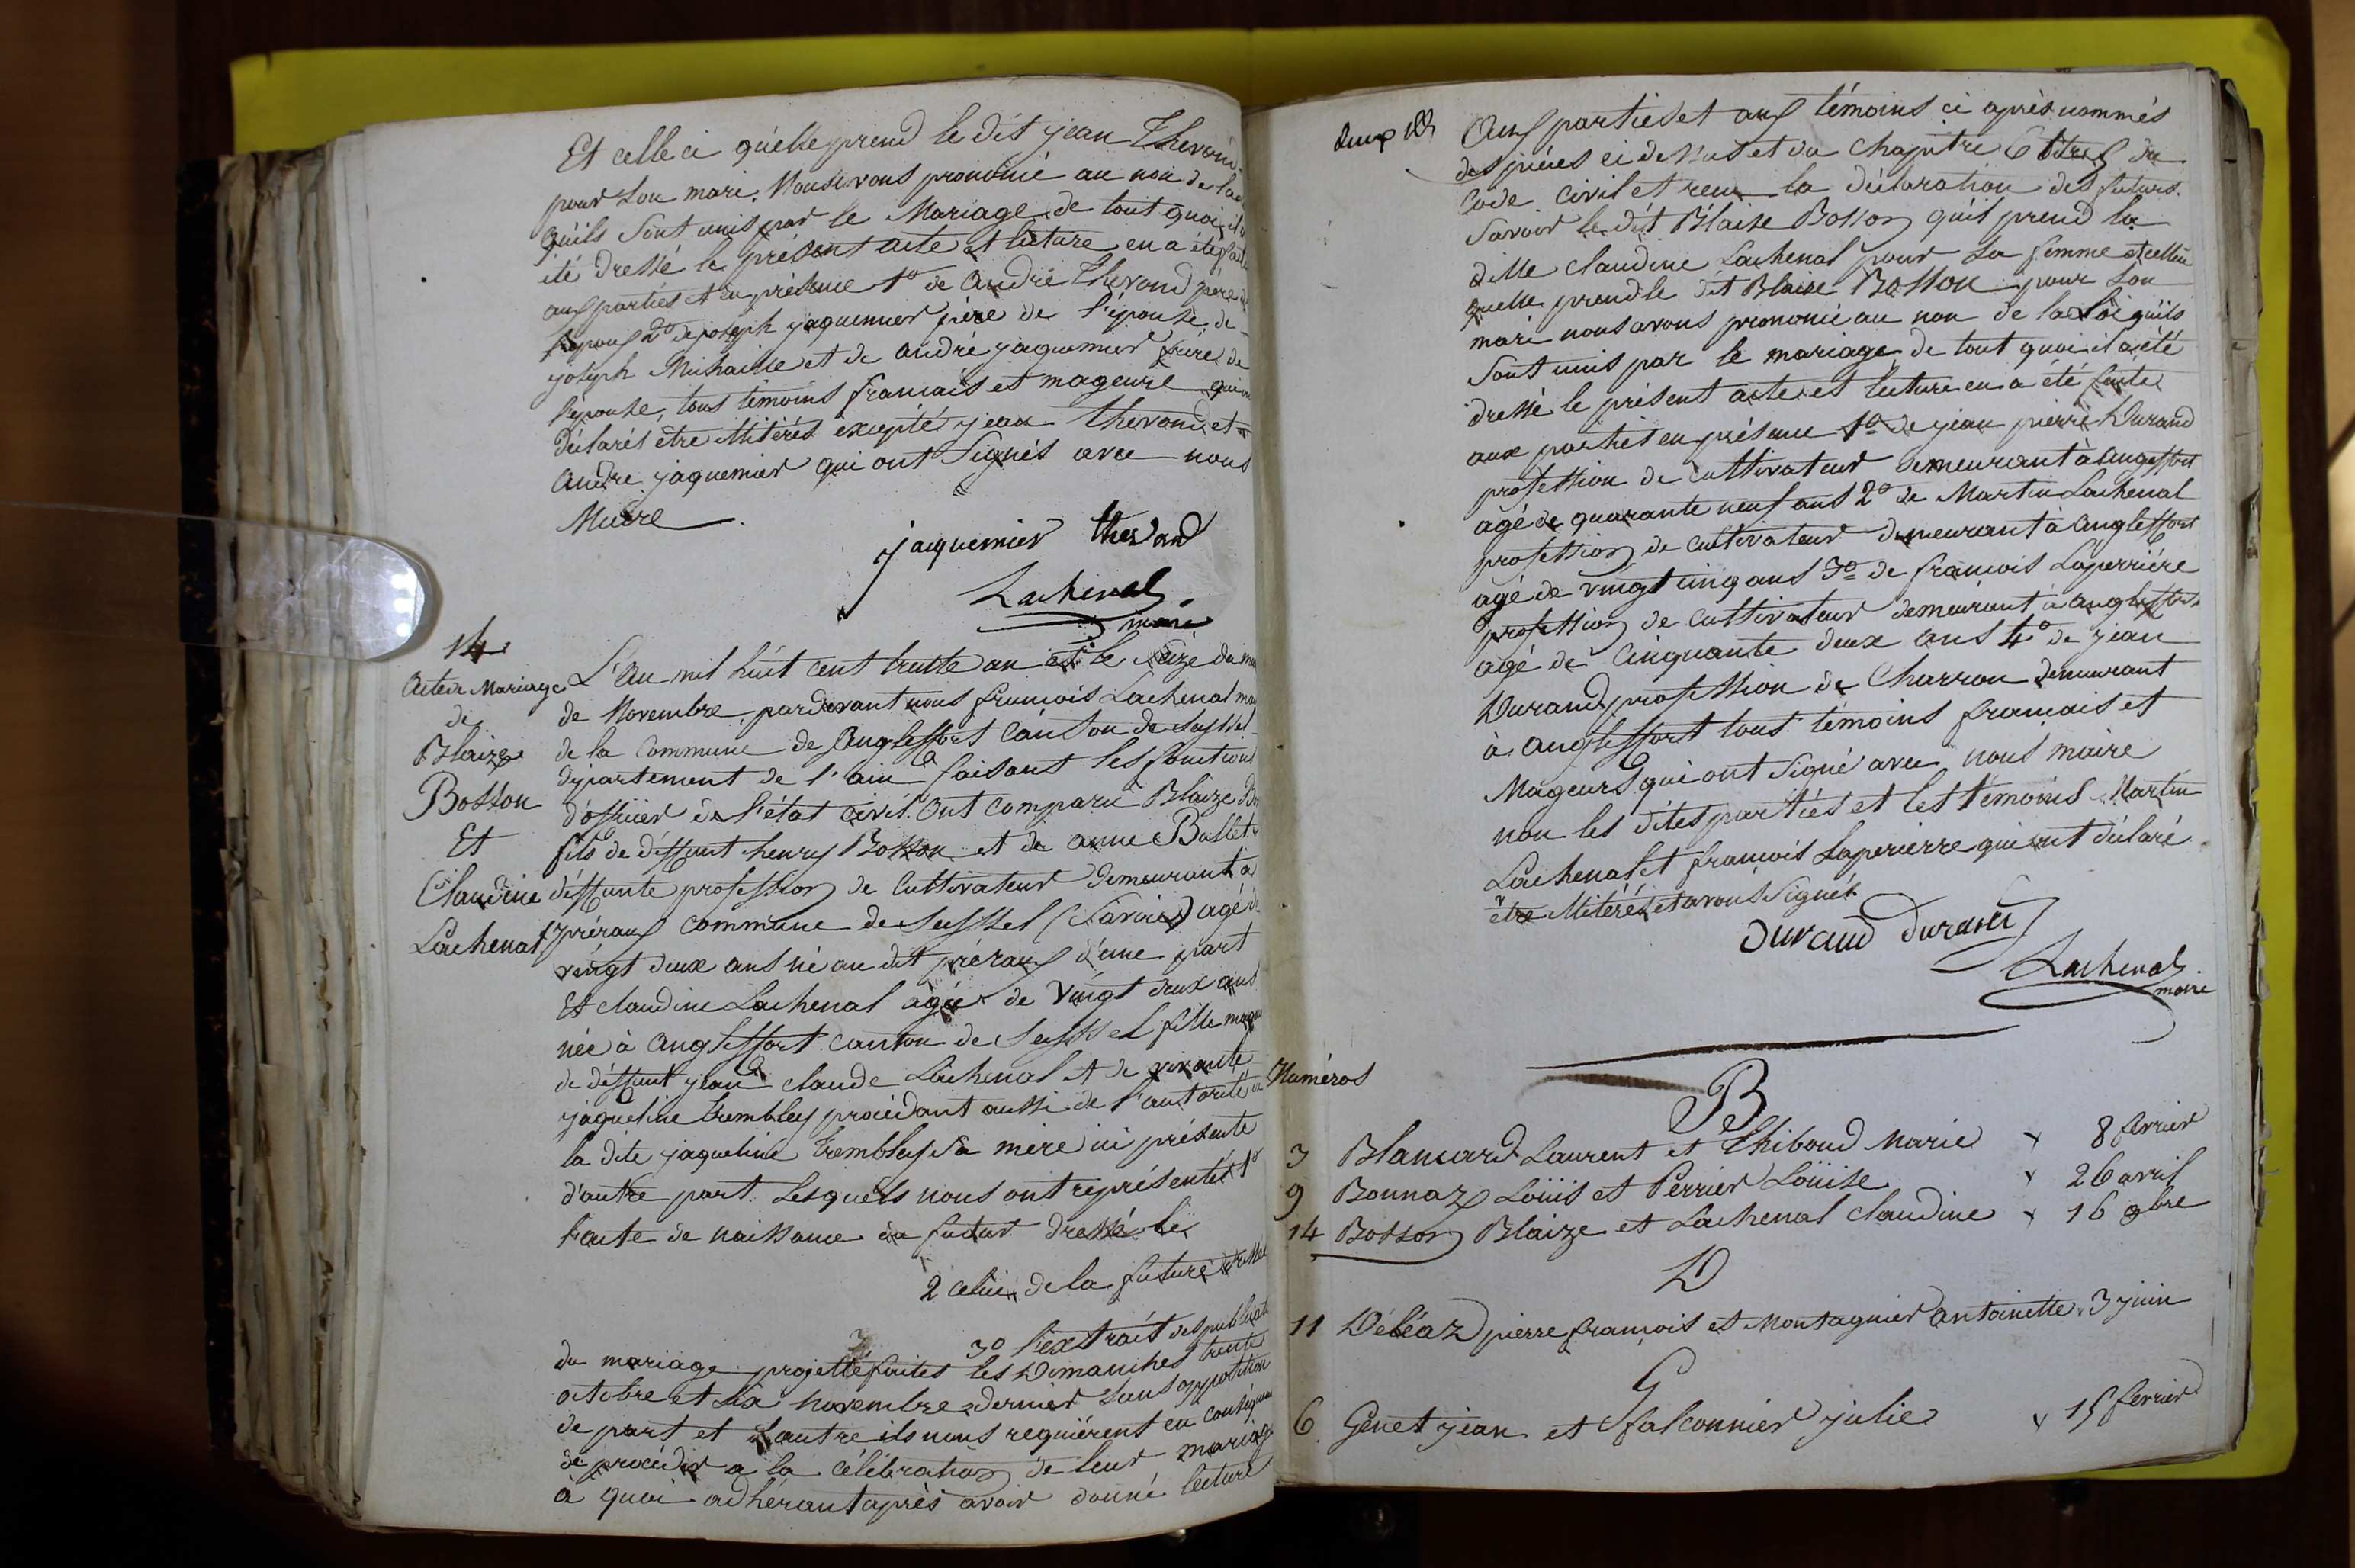 Et celle ci qu'elle prend le dit jean Thevond
pour son mari. Nous avons prononcé au nom de la
qu'ils sont unis par le Mariage de tout quoi il
été dressé le présent acte et lecture en a été faite
aux parties et en présence 1º de andré Thevond père de
l'epoux 2º de joseph jaquemier père de l'épouse, de
joseph Michaille et de andré jaquemier frère de
l'épouse, tous témoins francais et mageurs qui
déclarés être illitérés excepté jean Thevond et
andre jaquemier qui ont Signés avec nous
Maire
jaquemier thevond
Lachenal
maire
14
acte de Mariage
de
Blaize
Bosson
Et
Claudine
Lachenal
L'an mil huit cent trente un et le seize du mois
de Novembre, pardevant nous francois Lachenal maire
de la Commune de Anglessfort Canton de seyssel
département de l'ain faisant les fonctions
d'officier de l'état Civil. Ont comparu Blaize
fils de deffunt henry Bosson et de anne Ballet
déffunte profession de Cultivateur demeurant à
préraux commune de seyssel (Savoie) agé de
vingt deux ans né au dit préraux d'une part
Et claudine Lachenal agée de Vingt deux ans
née à Anglessfort canton de seyssel fille
de déffunt jean claude Lachenal et de vivante
jaqueline trembley procédant aussi de l'autorité de
la dite jaqueline trembley sa mère ici présente
d'autre part. Lesquels nous ont représentés 1º
l'acte de naissance du futur dressé le
2 celui de la future dressé
3º l'extrait des publicat
du mariage projetté faites les Dimanches trente
octobre et six novembre dernier sans opposition
de part et d'autre ils nous requièrent en conséquence
de procéder a la célébration de leur mariage
à quoi adhérant après avoir donné lecture
Aux parties et aux témoins ci après nommés
des pièces ci dessus et du chapitre 6 titre 5 du
Code Civil et reçu la déclaration des futurs.
Savoir le dit Blaise Bosson qu'il prend la
dille claudine Lachenal pour sa femme et celleci
quelle prend le dit Blaise Bosson pour son
mari nous avons prononcé au nom de la Loi qu'ils
sont unis par le mariage, de tout quoi il a été
dressé le présent acte et lecture en a été faite
aux parties en présence 1º de jean pierre Durand
profession de cultivateur demeurant à anglessfort
agé de quarante neuf ans 2º de Martin Lachenal
profession de cultivateur demeurant à anglessfort
agé de vingt cinq ans 3º de francois Laperriére
profession de Cultivateur demeurant à anglessfort
agé de Cinquante deux ans 4º de jean
Durand profession de Charron demeurant
à anglessfort tous témoins francais et
Mageurs qui ont signé avec nous maire
non les dites parties et les témoins Martin
Lachenal et francois Laperierre qui ont déclaré
être illitérés et avons signés.
Durand durand
Lachenal
maire
Numéros
B
3 Blancard Laurent et Thiboud Marie x 8 fevrier
9 Bonnaz Loüis et Perrier Loüise x 26 avril
14 Bosson Blaize et Lachenal claudine x 16 9bre
D
11 Déléaz pierre francois et Montagnier antoinette x 3 juin
G
6 Genet jean et falconnier julie x 15 fevrier